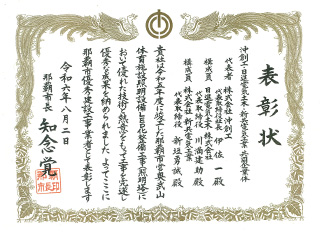 表彰状
沖創工・日進電気土木・新共電気工業共同企業体
代表者 株式会社 沖創工
代表取締役社長 伊佐 一 殿
構成員 日進電気土木株式会社
代表取締役 川満 建助 殿
構成員 株式会社 新共電気工業
代表取締役 新垣 勇誠 殿
貴社は令和五年度に竣工した那覇市営奥武山
体育施設照明設備LED化整備工事(照明塔)に
おいて優れた技術と熱意をもって工事を完遂し
優秀な成果を納められました よってここに
那覇市優秀建設工事業者として表彰します
令和六年八月二日
那覇市長 知念 覚